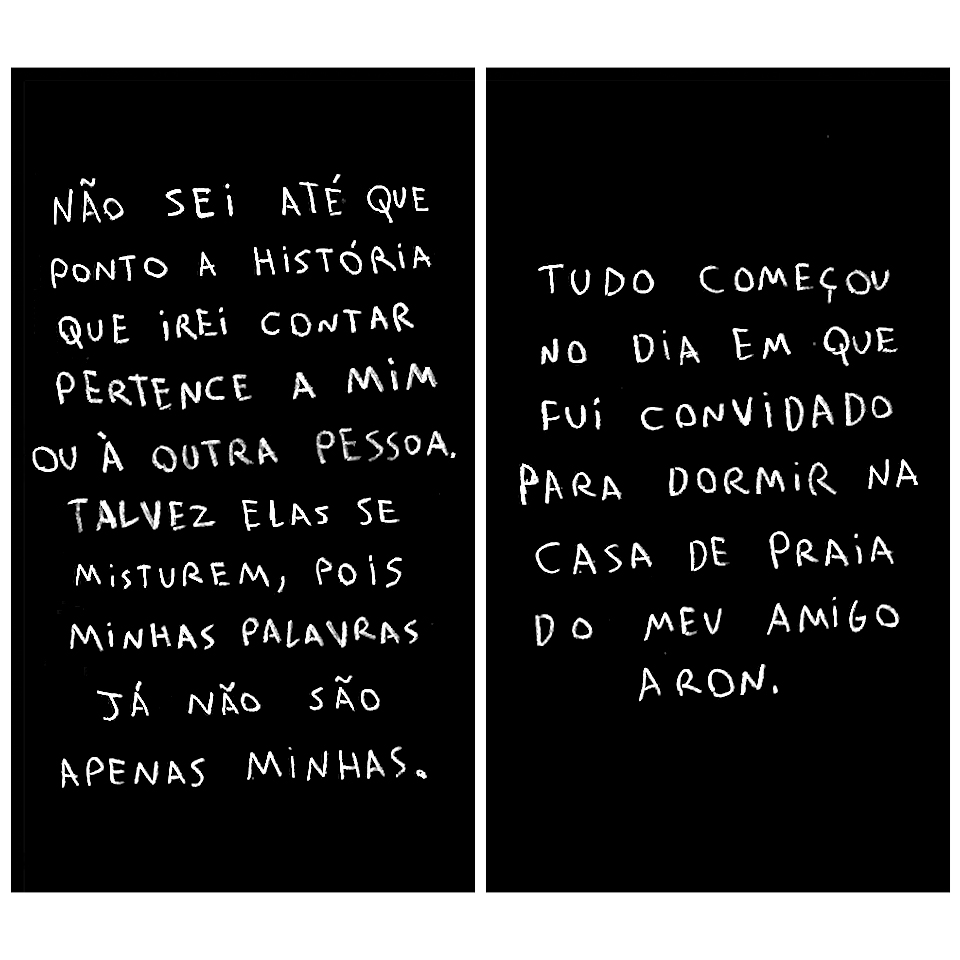 NÃO SEI ATÉ QUE
PONTO A HISTÓRIA
QUE IREI CONTAR
PERTENCE A MIM
OU À OUTRA PESSOA.
TALVEZ ELAS SE
MISTUREM, POIS
MINHAS PALAVRAS
JÁ NÃO SÃO
APENAS MINHAS.
TUDO COMEÇOU
NO DIA EM QUE
FUI CONVIDADO
PARA DORMIR NA
CASA DE PRAIA
DO MEU AMIGO
ARON.